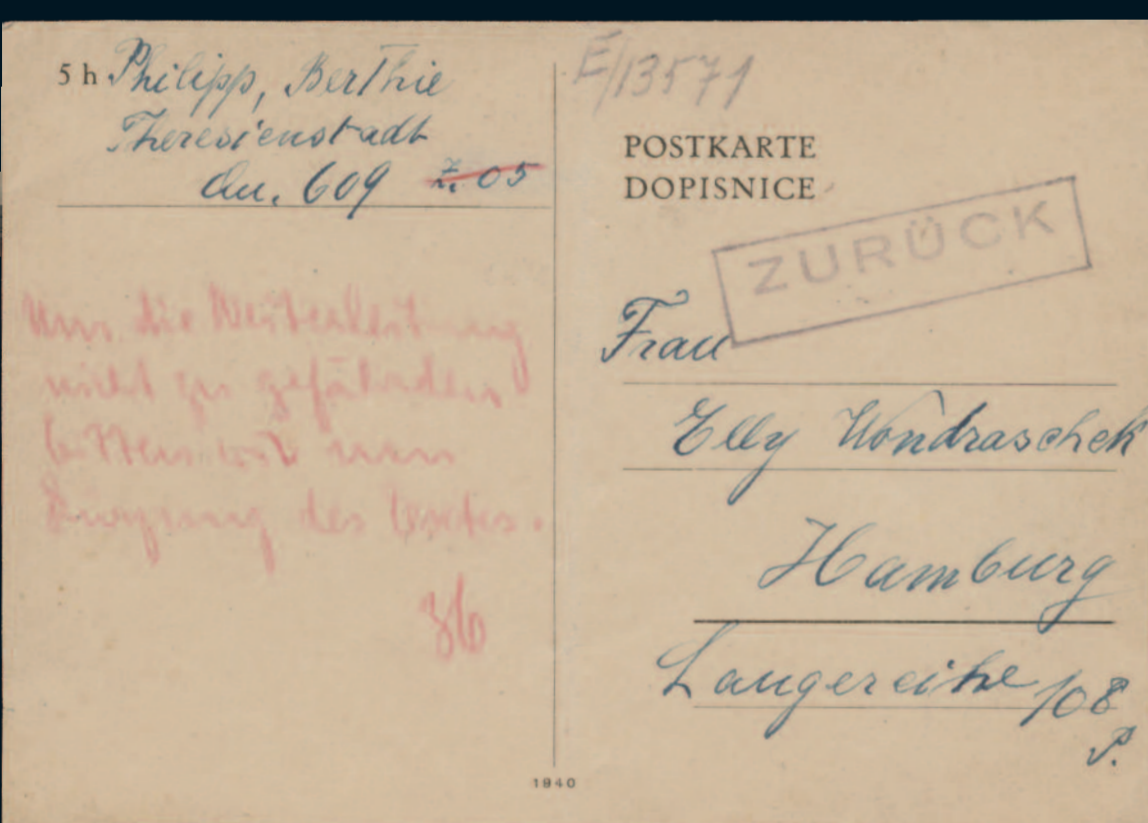 5 h Philipp, Berthie
Theresienstadt
Qu. 609 Z. 05
Um die Weiterleitung
nicht zu gefährden
bitten wir um
Kürzung des Textes.
E/13571
POSTKARTE
DOPISNICE
ZURÜCK
Frau
Elly Wondraschek
Hamburg
Langereihe 108
P.
1940